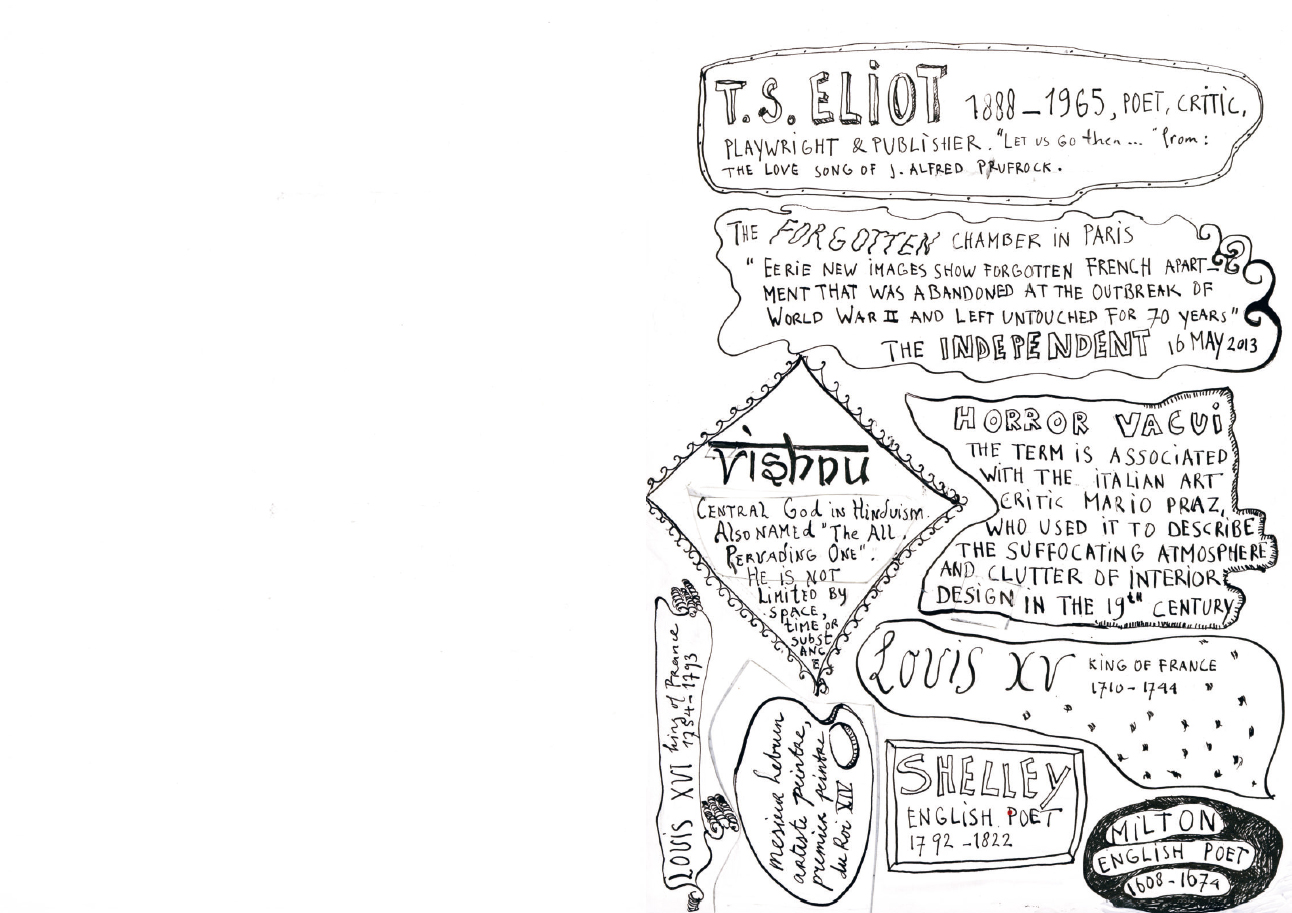 T.S. ELIOT 1888-1965, POET, CRITIC,
PLAYWRIGHT & PUBLISHER. "LET US GO then... " from:
THE LOVE SONG OF J. ALFRED PRUFROCK.
THE FORGOTTEN CHAMBER IN PARIS
" EERIE NEW IMAGES SHOW FORGOTTEN FRENCH APART-
MENT THAT WAS ABANDONED AT THE OUTBREAK OF
WORLD WAR II AND LEFT UNTOUCHED FOR 70 YEARS"
THE INDEPENDENT 16 MAY 2013
vishnu
CENTRAL God in Hinduism.
Also NAMEd "The All
PERVADING ONE".
HE IS NOT
LIMITED BY
SPACE,
TIME OR
SUBST
ANC
E
HORROR VACUI
THE TERM IS ASSOCIATED
WITH THE ITALIAN ART
CRITIC MARIO PRAZ,
WHO USED IT TO DESCRIBE
THE SUFFOCATING ATMOSPHERE
AND CLUTTER OF INTERIOR
DESIGN IN THE 19th CENTURY
LOUIS XV KING OF FRANCE
1710-1744
LOUIS XVI king of France
1754-1793
mesieux lebrun
artiste peintre,
premier peintre
du Roi XIV
SHELLEY
ENGLISH POET
1792-1822
MILTON
ENGLISH POET
1608-1674